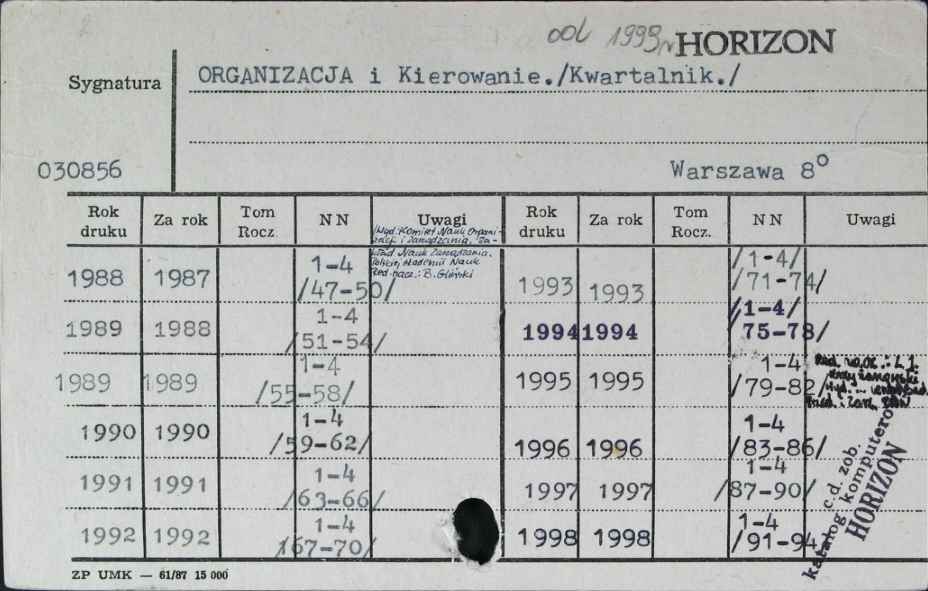 od 1999 r HORIZON
Sygnatura ORGANIZACJA i Kierowanie./Kwartalnik./
030856 Warszawa 8°
Rok druku Za rok Tom Rocz. N N Uwagi Rok druku Za rok Tom Rocz. N N Uwagi
Wyd.: Komitet Nauk Organi-
zacji i Zarządzania, Za-
kład Nauk Zarządzania.
Polskiej Akademii Nauk
Red. nacz.: B. Gliński
1988 1987 1-4 /47-50/ 1993 1993 /1-4/ /71-74/
1989 1988 1-4 /51-54/ 1994 1994 /1-4/ 75-78/
1989 1989 1-4 /55-58/ 1995 1995 1-4 /79-82/
Red. nacz.: L. J.
Krzyżanowski
Wyd.
1990 1990 1-4 /59-62/ 1996 1996 1-4 /83-86/
1991 1991 1-4 /63-66/ 1997 1997 1-4 /87-90/
1992 1992 1-4 /67-70/ 1998 1998 1-4 /91-94
c.d. zob.
katalog komputerowy
HORIZON
ZP UMK — 61/87 15 000